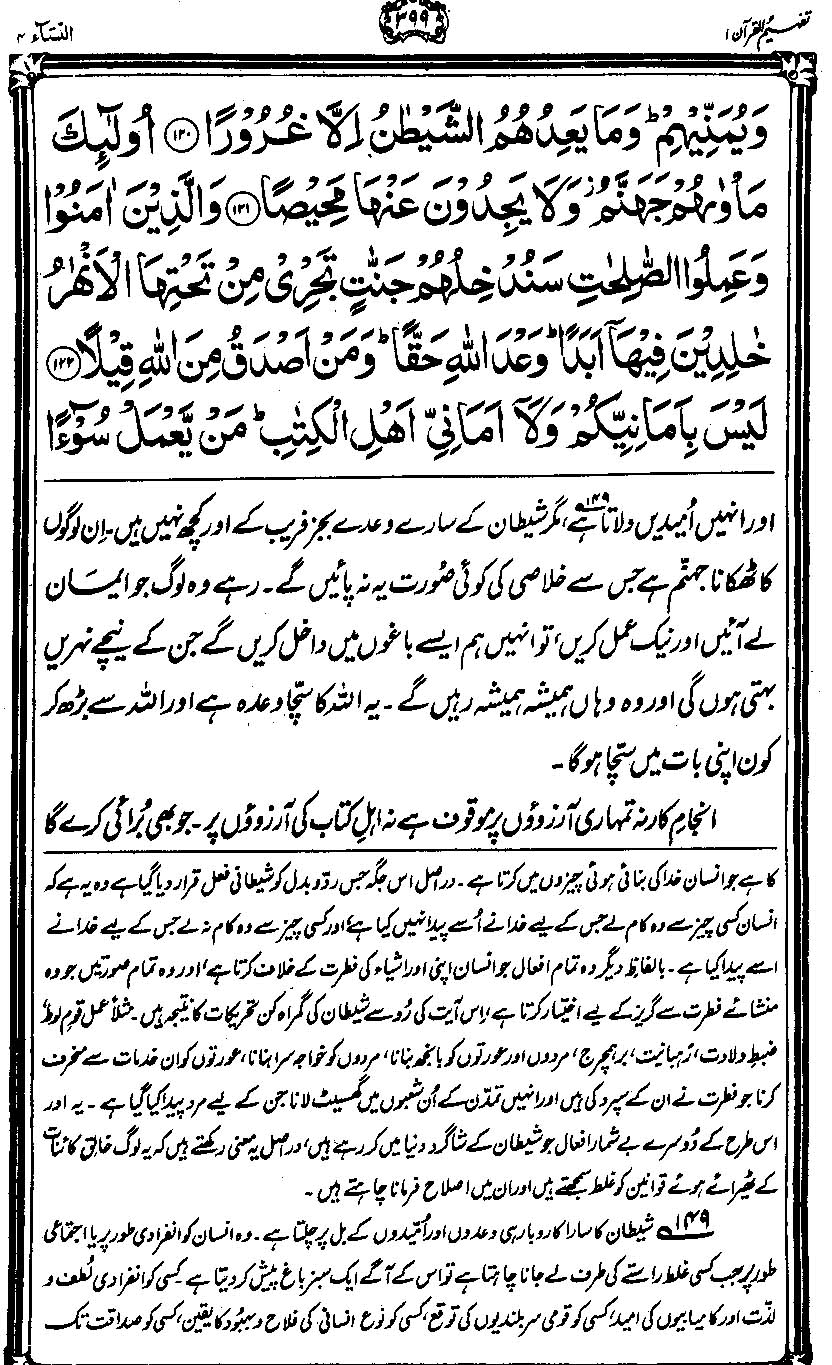 تفہیم القرآن ۱
۳۹۹
النسآء ۴
وَيُمَنِّيْهِمْ ؕ وَمَا يَعِدُهُمُ الشَّيْطٰنُ اِلَّا غُرُوْرًا ﴿۱۲۰﴾ اُولٰٓئِكَ
مَاْوٰىهُمْ جَهَنَّمُ ؗ وَلَا يَجِدُوْنَ عَنْهَا مَحِيْصًا ﴿۱۲۱﴾ وَالَّذِيْنَ اٰمَنُوْا
وَعَمِلُوا الصّٰلِحٰتِ سَنُدْخِلُهُمْ جَنّٰتٍ تَجْرِيْ مِنْ تَحْتِهَا الْاَنْهٰرُ
خٰلِدِيْنَ فِيْهَآ اَبَدًا ؕ وَعْدَ اللّٰهِ حَقًّا ؕ وَمَنْ اَصْدَقُ مِنَ اللّٰهِ قِيْلًا ﴿۱۲۲﴾
لَيْسَ بِاَمَانِيِّكُمْ وَلَآ اَمَانِيِّ اَهْلِ الْكِتٰبِ ؕ مَنْ يَّعْمَلْ سُوْٓءًا
اور انہیں اُمیدیں دلاتا ہے۱۴۹، مگر شیطان کے سارے وعدے بجز فریب کے اور کچھ نہیں ہیں۔ اِن لوگوں
کا ٹھکانا جہنّم ہے جس سے خلاصی کی کوئی صُورت یہ نہ پائیں گے۔ رہے وہ لوگ جو ایمان
لے آئیں اور نیک عمل کریں، تو انہیں ہم ایسے باغوں میں داخل کریں گے جن کے نیچے نہریں
بہتی ہوں گی اور وہ وہاں ہمیشہ ہمیشہ رہیں گے۔ یہ اللہ کا سچّا وعدہ ہے اور اللہ سے بڑھ کر
کون اپنی بات میں سچّا ہوگا۔
انجامِ کار نہ تمہاری آرزوؤں پر موقوف ہے نہ اہلِ کتاب کی آرزوؤں پر۔ جو بھی بُرائی کرے گا
کا ہے جو انسان خدا کی بنائی ہوئی چیزوں میں کرتا ہے۔ دراصل اس جگہ جس ردّ و بدل کو شیطانی فعل قرار دیا گیا ہے وہ یہ ہے کہ
انسان کسی چیز سے وہ کام لے جس کے لیے خدا نے اُسے پیدا نہیں کیا ہے، اور کسی چیز سے وہ کام نہ لے جس کے لیے خدا نے
اسے پیدا کیا ہے۔ بالفاظِ دیگر وہ تمام افعال جو انسان اپنی اور اشیاء کی فطرت کے خلاف کرتا ہے، اور وہ تمام صورتیں جو وہ
منشائے فطرت سے گریز کے لیے اختیار کرتا ہے، اس آیت کی رُو سے شیطان کی گمراہ کن تحریکات کا نتیجہ ہیں۔ مثلاً عمل قومِ لوط،
ضبطِ ولادت، رَہبانیت، برہمچرج، مردوں اور عورتوں کو بانجھ بنانا، مردوں کو خواجہ سرا بنانا، عورتوں کو ان خدمات سے منحرف
کرنا جو فطرت نے ان کے سپرد کی ہیں اور انہیں تمدّن کے اُن شعبوں میں گھسیٹ لانا جن کے لیے مرد پیدا کیا گیا ہے۔ یہ اور
اس طرح کے دُوسرے بے شمار افعال جو شیطان کے شاگرد دنیا میں کر رہے ہیں، دراصل یہ معنی رکھتے ہیں کہ یہ لوگ خالقِ کائنات
کے ٹھیرائے ہوئے قوانین کو غلط سمجھتے ہیں اور ان میں اصلاح فرمانا چاہتے ہیں۔
۱۴۹ شیطان کا سارا کاروبار ہی وعدوں اور اُمّیدوں کے بل پر چلتا ہے۔ وہ انسان کو انفرادی طور پر یا اجتماعی
طور پر جب کسی غلط راستے کی طرف لے جانا چاہتا ہے تو اس کے آگے ایک سبز باغ پیش کر دیتا ہے۔ کسی کو انفرادی لُطف و
لذّت اور کامیابیوں کی امید، کسی کو قومی سربلندیوں کی توقع، کسی کو نوعِ انسانی کی فلاح و بہبُود کا یقین، کسی کو صداقت تک